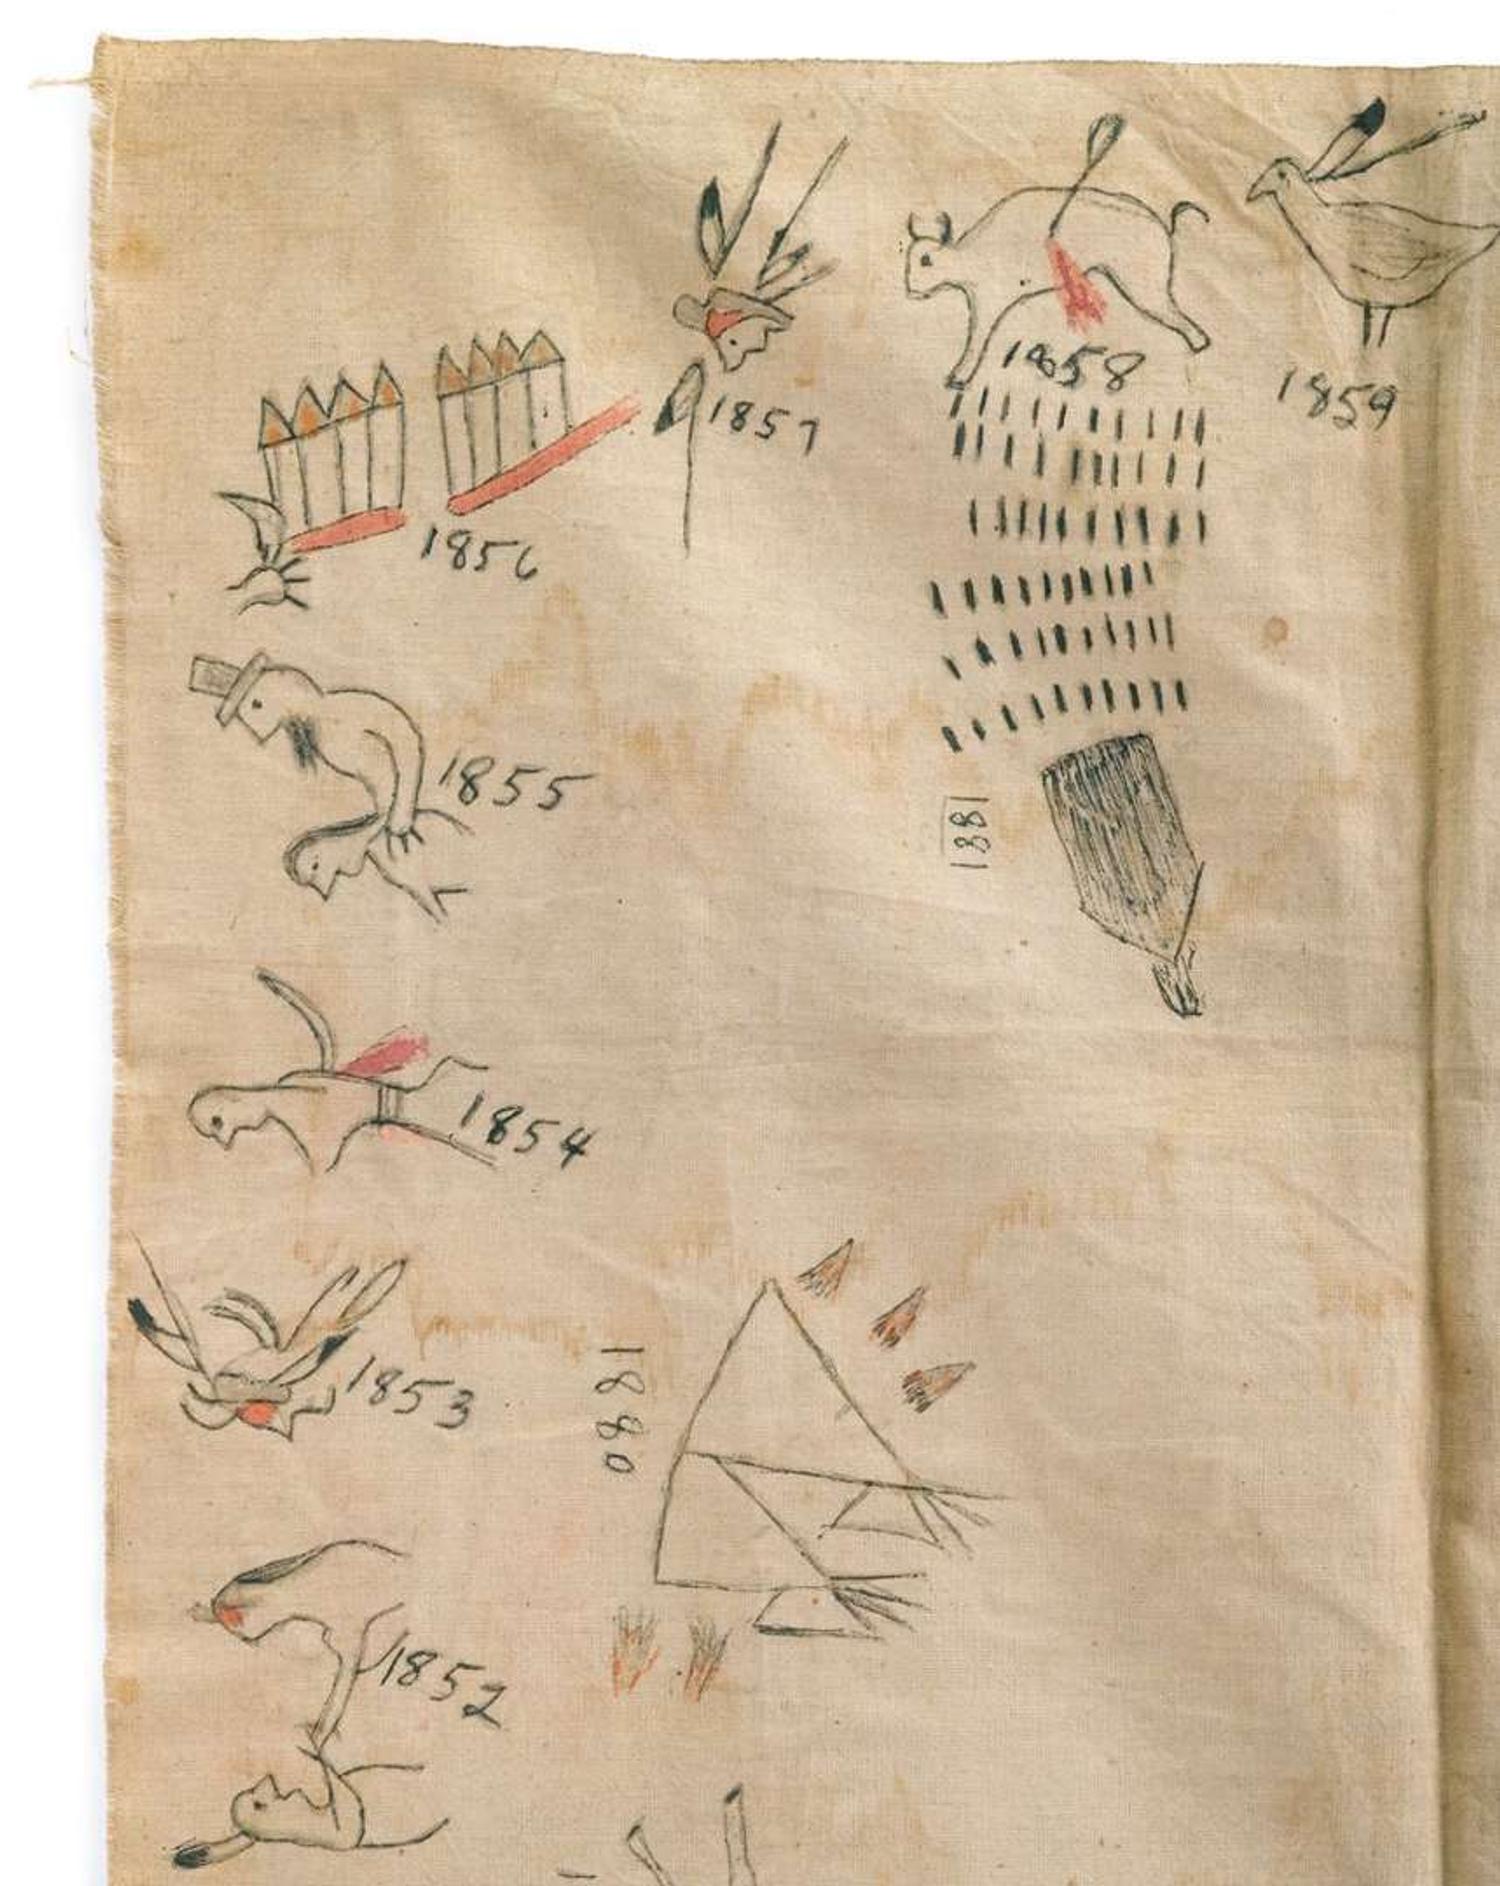 1857
1858
1859
1856
1855
1881
1854
1853
1880
1852